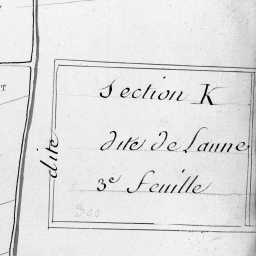 Section K
dite de Laune
3e feuille
dite
T